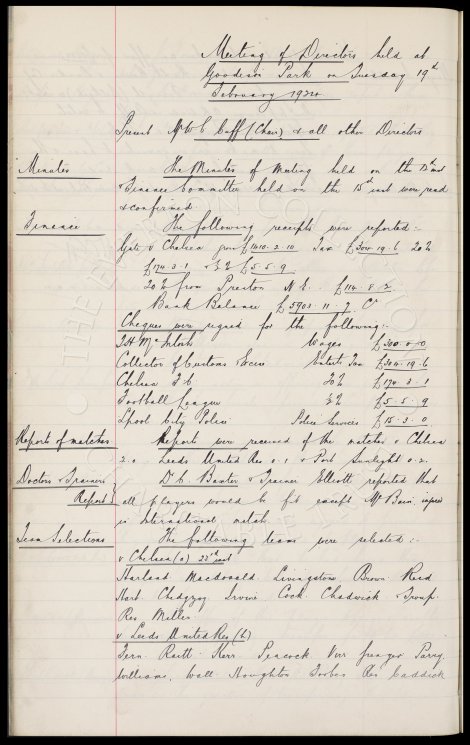 Meeting of Directors held at
Goodison Park on Tuesday 19th
February 1924.
Present Mr W C Cuff (Chair) & all other Directors
Minutes The Minutes of Meeting held on the 12th inst
& Finance Committee held on the 15th inst were read
& confirmed
Finance The following receipts were reported:-
Gate v Chelsea gross £1410.2.10 Tax £304.19.6 20%
£174.3.1 & ½% £5.5.9
20% from Preston N.E. £114.8.2
Bank Balance £5903.11.7 Cr
Cheques were signed for the following:-
T.H. McIntosh Wages £300.0.0
Collector of Customs & Excise Entert. Tax £304.19.6
Chelsea F.C. 20% £174.3.1
Football League ½% £5.5.9
L'pool City Police Police Services £15.3.0
Reports of matches Reports were received of the matches v Chelsea
2.0 Leeds United Res 0.1 & Port Sunlight 0.2.
Doctors & Trainers Dr. C. Baxter & Trainer Elliott reported that
Report all players would be fit except Mr Bain, injured
in International match.
Team Selections The following teams were selected:-
v Chelsea (a) 23rd inst
Harland Macdonald Livingstone Brown Reid
Hart Chedgzoy Irvine Cock Chadwick & Troup.
Res. Miller
v Leeds United Res (h)
Fern Raitt Kerr Peacock Parry
Williams, Wall Houghton Forbes Res Caddick